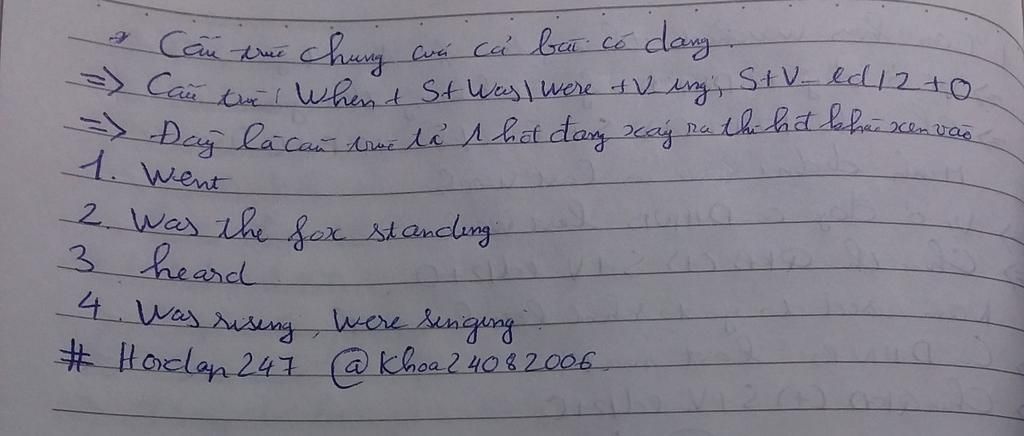 → Cấu trúc chung của cả bài có dạng.
=> Cấu trúc: When + S + Was\Were + V ing, S + V_ed/2 + O
=> Đây là cấu trúc tả 1 hđ đang xảy ra thì hđ khác xen vào
1. Went
2. Was the fox standing
3 heard
4. Was rising, Were singing.
# Hoidap247 @Khoa24082006.